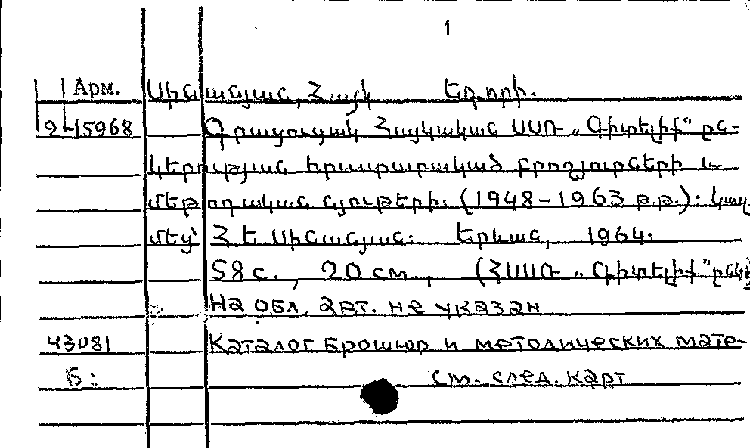 1
Арм. Սինանյան, Հայկ Եղորի.
2-15968 Գրացուցակ Հայկական ՍՍՌ „Գիտելիք" ըն-
կերության հրապարակած բրոշյուրների և
մեթոդական նյութերի. (1948-1963 թ.թ.): Կազ.
մեց՝ Հ. Ե. Սինանյան: Երևան, 1964.
58 с., 20 см., (ՀՍՍՌ „Գիտելիք" ընկ
На обл. авт. не указан
43081 Каталог брошюр и методических мате-
Б: см. след. карт